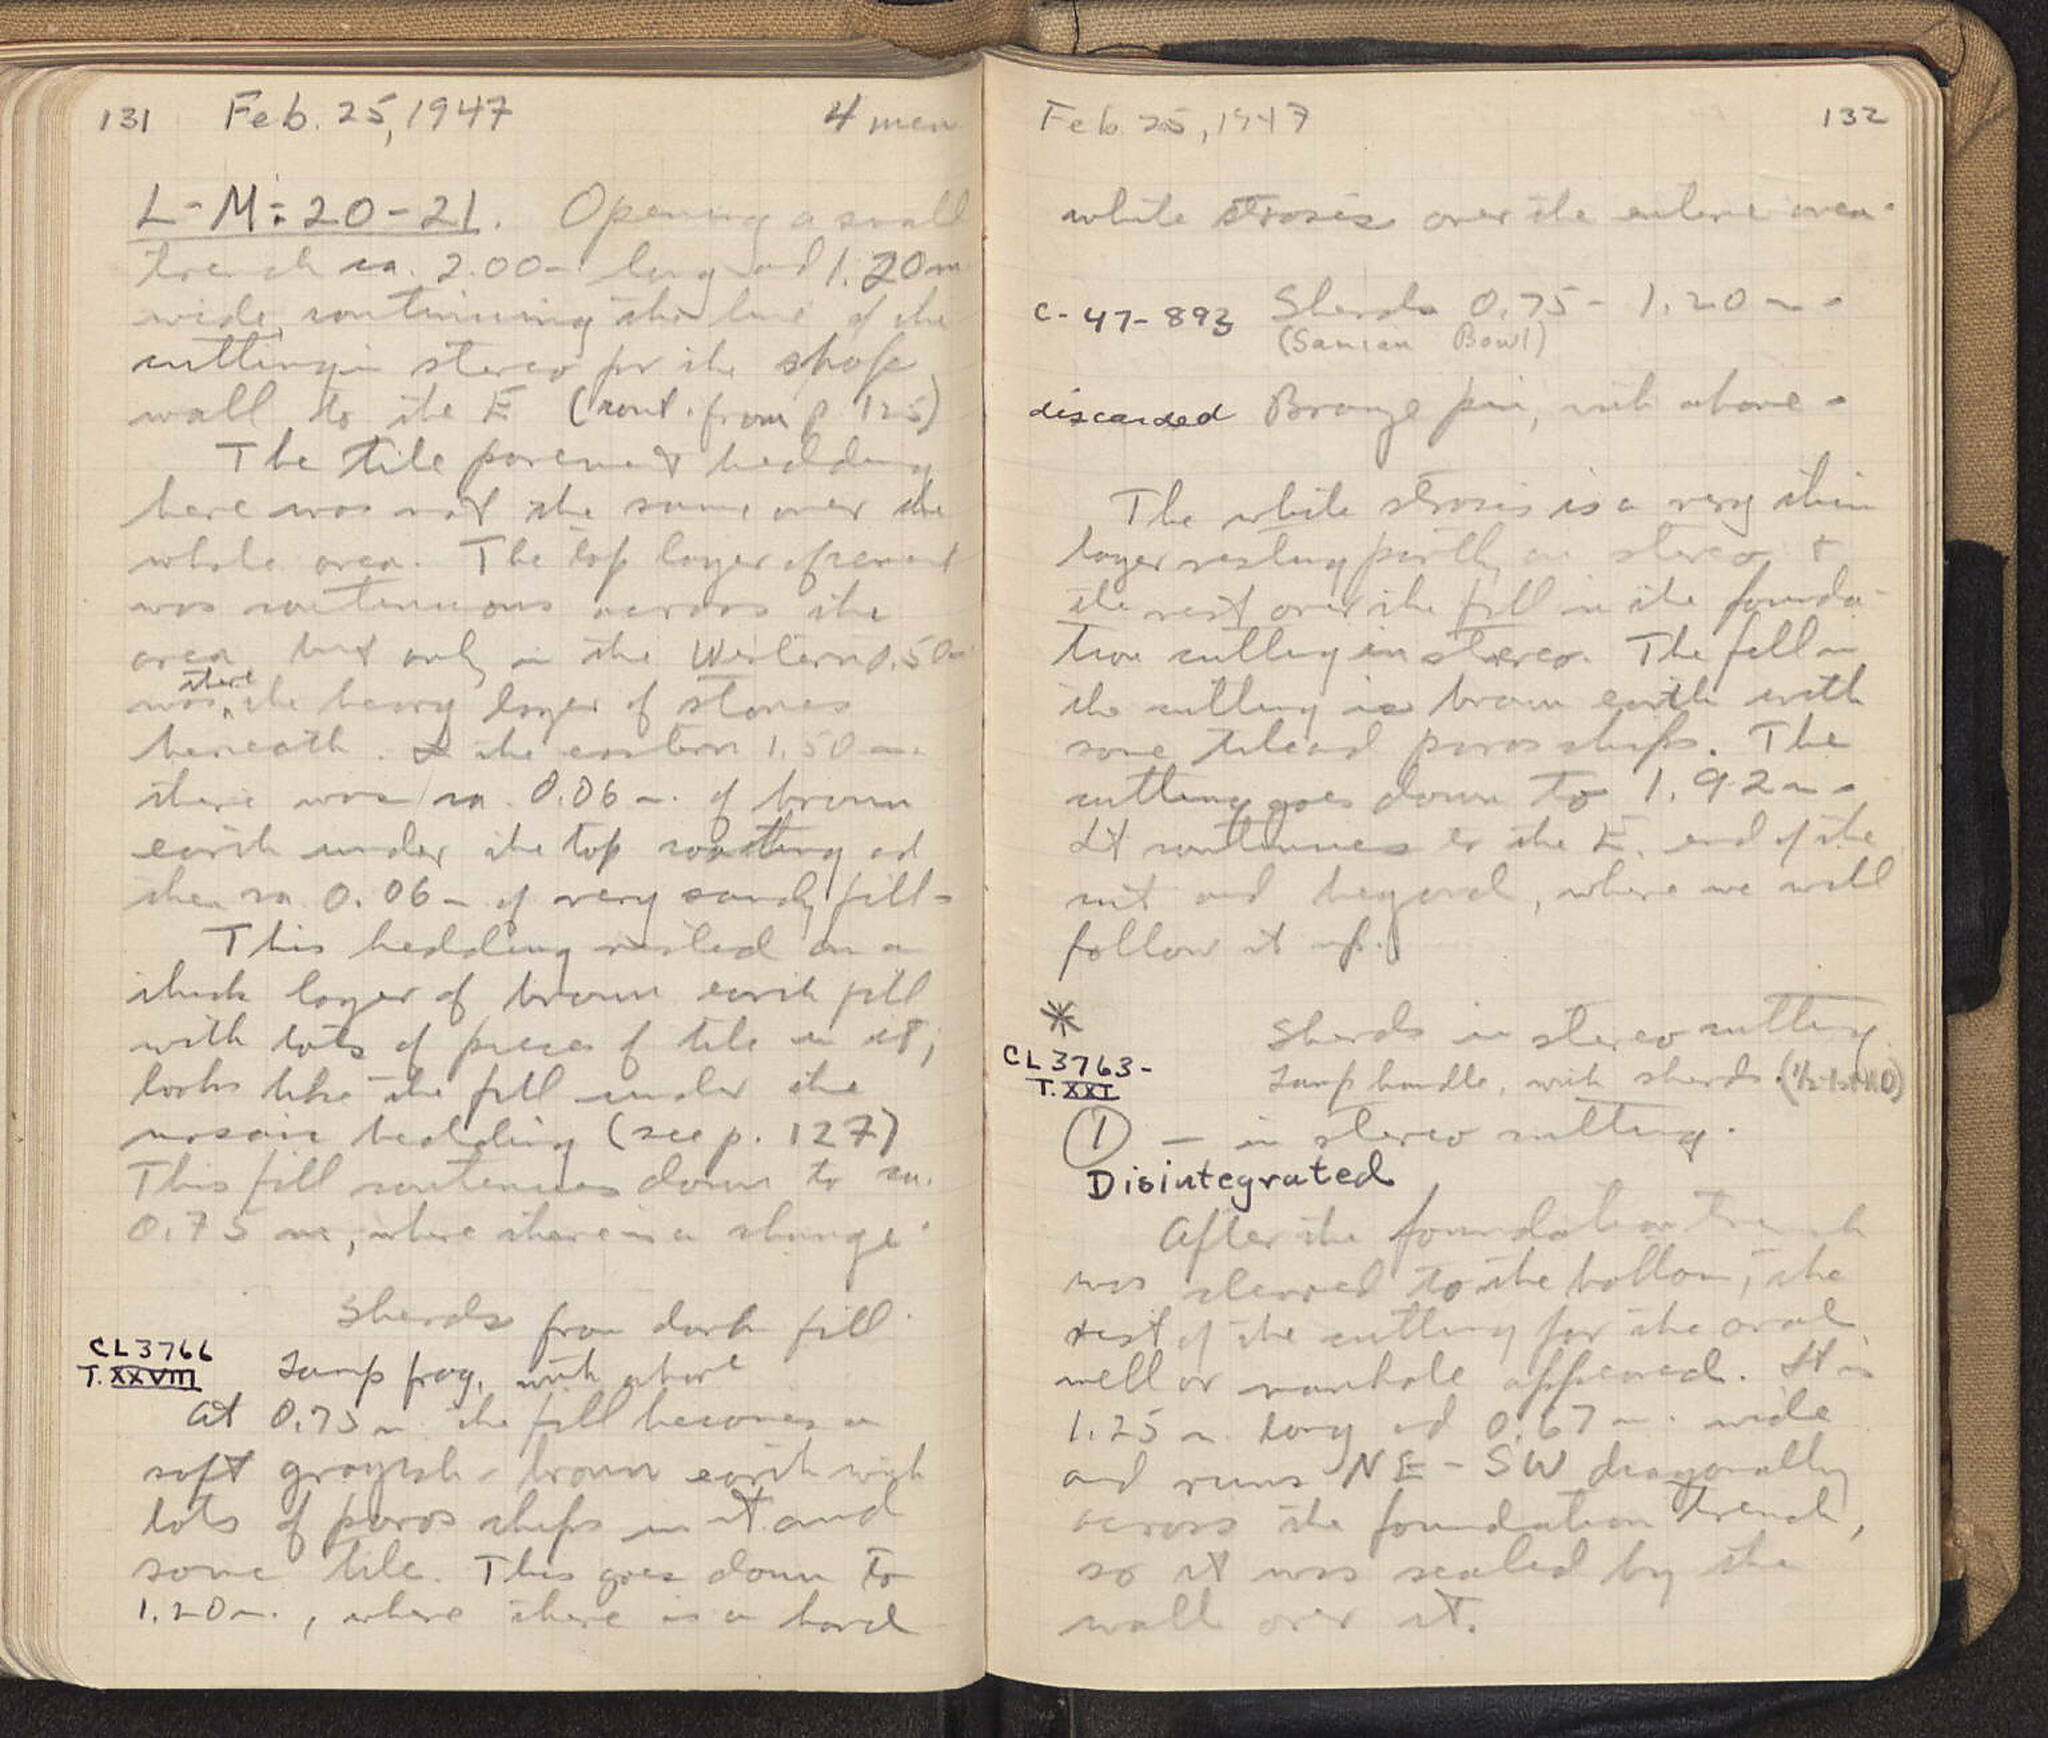 131 Feb. 25, 1947 4 men
L-M:20-21. Opening a small
trench ca. 2.00m long and 1.20m
wide, continuing the line of the
cutting in stereo for the shop
wall to the E (cont. from p 125)
The tile pavement bedding
here was not the same over the
whole area. The top layer of cement
was continuous across the
area but only in the Western 0.50m
was there the heavy layer of stones
beneath. In the eastern 1.50 m.
there was ca. 0.06 m. of brown
earth under the top coating and
then ca 0.06 m of very sandy fill.
This bedding rested on a
thick layer of brown earth fill
with lots of pieces of tile in it;
looks like the fill under the
mosaic bedding (see p. 127)
This fill continues down to ca.
0.75 m, where there is a change.
Sherds from dark fill.
CL 3766
T. XXVIII Lamp frag, with above
At 0.75 m the fill becomes a
soft grayish-brown earth with
lots of poros chips in it and
some tile. This goes down to
1.20 m., where there is a hard
Feb 25, 1947 132
white strosis over the entire area.
C-47-893 Sherds 0.75 - 1.20 m.
(Samian Bowl)
discarded Bronze pin, with above.
The white strosis is a very thin
layer resting partly on stereo &
the rest over the fill in the founda-
tion cutting in stereo. The fill in
the cutting is brown earth with
some tile and poros chips. The
cutting goes down to 1.92 m.
It continues to the E. end of the
cut and beyond, where we will
follow it up.
*
Sherds in stereo cutting
CL 3763- Lamp handle, with sherds.
T. XXI
① — in stereo cutting.
Disintegrated
After the foundation trench
was cleared to the bottom, the
rest of the cutting for the oval
well or manhole appeared. It is
1.25 m. long and 0.67 m. wide
and runs NE-SW diagonally
across the foundation trench,
so it was sealed by the
wall over it.